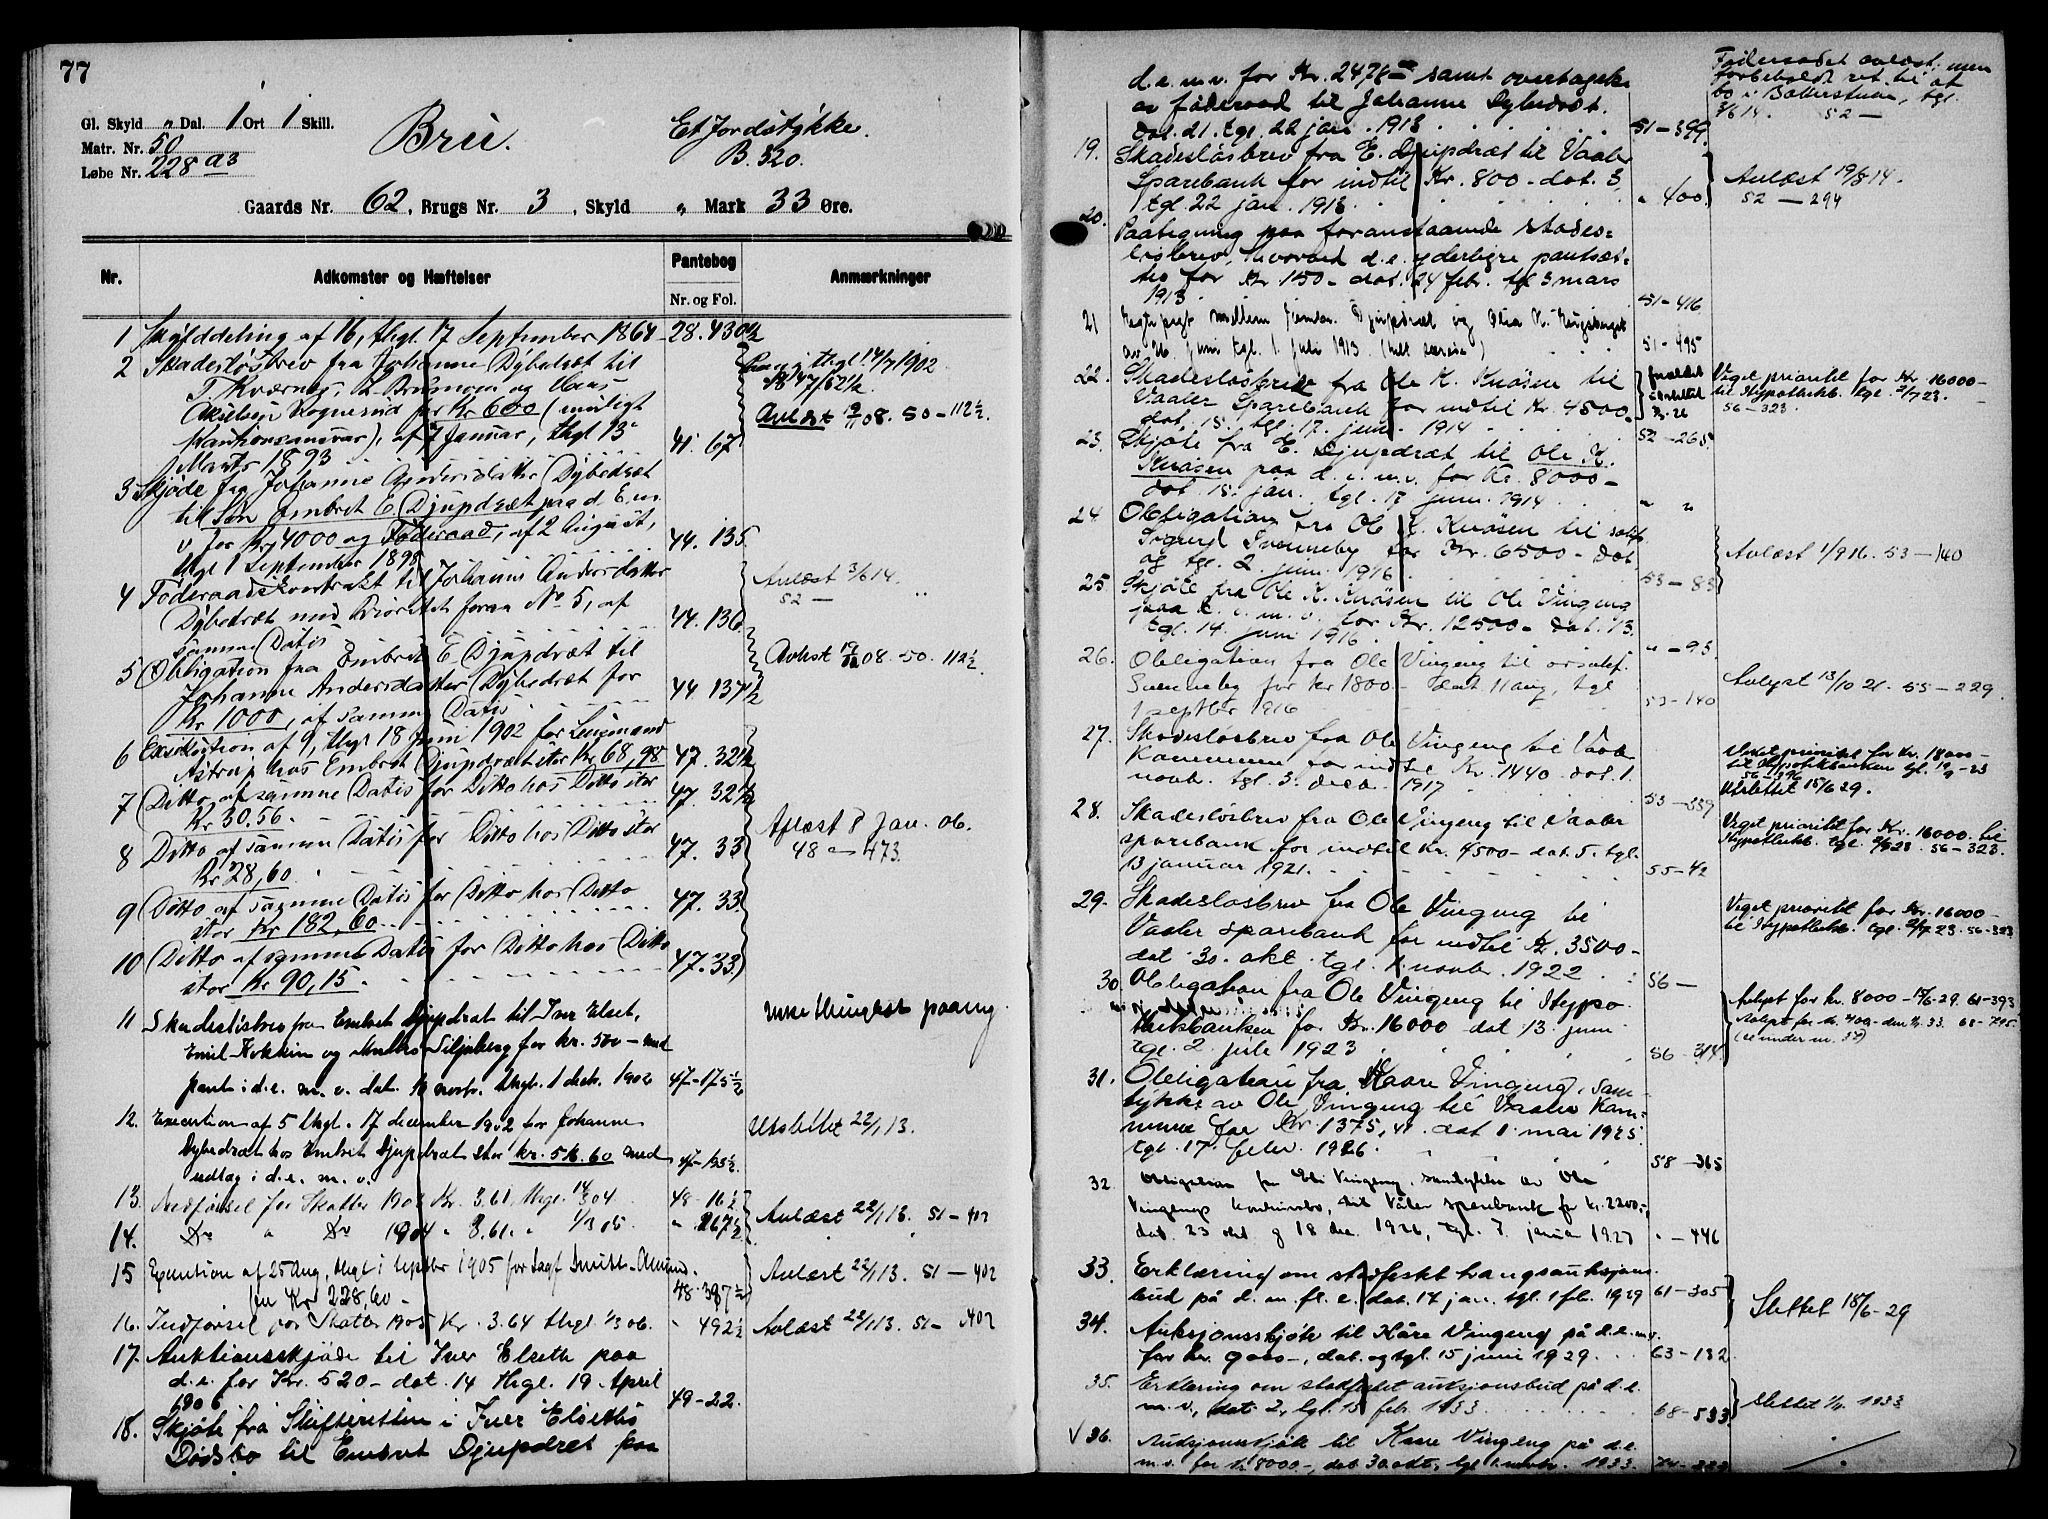 77
Gl. Skyld " Dal. 1 Ort 1 Skill.
Matr. Nr. 50
Løbe Nr. 228 a3
Bru.
Et Jordstykke.
B. 320.
Gaards Nr. 62, Brugs Nr. 3, Skyld " Mark 33 Øre.
Nr. Adkomster og Hæftelser Pantebog Anmærkninger
Nr. og Fol.
1 Skylddeling af 16, thgl. 17 September 1864 28. 430 1/2
2 Skadesløsbrev fra Johanne Dybedræt til
T. Kværnes, og Hans
Kr 600 (muligt
Kautionsansvar), af 7 Januar, thgl 13
Marts 1893 41. 67
thgl. 14/7 1902
Avlæst 08. 50 - 112 1/2.
3 Skjøde fra Johanne Andersdatter Dybedræt
til Søn Embret E. Djupdræt paa d. E. m.
v. for Kr 4000 og Føderaad, af 2 August,
thgl 1 September 1898 44. 135
4 Føderaadskontrakt til Johanne Andersdatter
Dybedræt med Prioritet foran No 5, af
samme Datis 44. 136
Avlæst 3/6 14.
52 — "
5 Obligation fra Embret E. Djupdræt til
Johanne Andersdatter Dybedræt for
Kr 1000, af samme Datis 44 137 1/2
Avlæst 08. 50. 112 1/2.
6 Exekution af 9, thgl 18 Juni 1902 for Lensmand
Astrup hos Embret Djupdræt stor Kr 68,98 47. 32 1/2
7 Ditto af samme Datis for Ditto hos Ditto stor
Kr 30.56. 47. 32 1/2
8 Ditto af samme Datis for Ditto hos Ditto stor
Kr 28,60. 47. 33
Aflæst 8 Jan. 06.
48 - 473.
9 Ditto af samme Datis for Ditto hos Ditto
stor Kr 182,60 47. 33.
10 Ditto af samme Datis for Ditto hos Ditto
stor Kr 90,15. 47. 33.
11 Skadesløsbrev fra Embret Djupdræt til Iver Elset,
Emil Kokkim og Anders Siljuberg for kr. 500 - med
pant i d. e. m. v. dat. 10 novbr. thgl. 1 decbr. 1902 47-175 1/2
12. Execution af 5 thgl. 17 december 1902 for Johanne
Dybedræt hos Embret Djupdræt stor kr. 516.60 med
udlæg i d. e. m. v. 47-185 1/2.
Utslettet 22/1 13.
13. Indførsel for Skatter 1903 Kr. 3.61, thgl. 04. 48-16 1/2
14. Do " Do 1904 " 3.61. " 1/3 05. " 267 1/2
Avlæst 22/1 13. 51 - 402
15 Execution af 25 Aug, thgl 1 septbr 1905 for Sagf Smitt-Amund.
for Kr 228,60 - 48-387 1/2
Avlæst 22/1 13. 51 — 402
16. Indførsel for Skatter 1905 Kr. 3.64 thgl. 1/3 06. " 492 1/2
Avlæst 22/1 13. 51 - 402
17. Auktionsskjøde til Iver Elseth paa
d. e. for Kr. 520 - dat. 14 thgl. 19 April
1906 49-22.
18. Skjøte fra Skifteretten i Iver Elseths
Dødsbo til Embret Djupdræt paa
d. e. m. v. for Kr. 2478 - samt overtagelse
av føderaad til Johanne Dybedræt.
Dat. 21. tgl. 22 jan. 1913 51-399.
Føderaadet avlæst, men
forbeholdt ret til at
bo i Bakkerstuen, tgl.
3/6 14. 52 —
19. Skadesløsbrev fra E. Djupdræt til Vaaler
Sparebank for indtil Kr. 800 - dat. 3,
tgl. 22 jan. 1913 " 400.
Avlæst 19/8 14.
52 — 294
20. Paategning paa foranstaaende skades-
løsbrev, hvorved d. e. yderligere pantsæt-
tes for Kr. 150 - dat. 24 febr. tgl 3 mars
1913 51-416
21 Ægtepagt mellem Embr. Djupdræt og Olea K.
av 26. juni tgl. 1. juli 1913. (helt særeie) 51-495
22. Skadesløsbrev fra Ole K. Knøsen til
Vaaler Sparebank for indtil Kr. 4500 -
dat. 15. tgl. 17. juni 1914 52-265
Veget prioritet for Kr. 16000 -
til Hypothekb. tgl. 2/7 23.
56-323.
23. Skjøte fra E. Djupdræt til Ole K.
Knøsen paa d. e. m. v. for Kr. 8000 -
dat. 15. jan. tgl. 17 juni 1914 " "
24. Obligation fra Ole K. Knøsen til
Svenneby for Kr. 6500 - dat.
og tgl. 2. juni 1916. 53-83
Avlæst 1/9 16. 53 — 140
25. Skjøte fra Ole K. Knøsen til Ole Vingeng
paa d. e. m. v. for Kr. 12500 - dat. 13.
tgl. 14. juni 1916. " - 95.
26. Obligation fra Ole Vingeng til
Svenneby for Kr 1800 - dat 11 aug, tgl
1 septbr 1916 53-140
Avlyst 13/10 21. 55 — 229.
27. Skadesløsbrev fra Ole Vingeng til Vaaler
Kommune for indtil Kr. 1440. dat. 1.
novbr. tgl. 3. decbr. 1917 53-339
Veket prioritet for kr. 18000 -
til Hypotekbanken tgl.
Utslettet 15/6 29.
28. Skadesløsbrev fra Ole Vingeng til Vaaler
sparebank for indtil Kr. 4500 - dat. 5. tgl.
13 januar 1921. 55-42
Veget prioritet for Kr. 16000. til
Hypothekb. tgl. 2/7 23. 56-323.
29. Skadesløsbrev fra Ole Vingeng til
Vaaler sparebank for indtil Kr. 3500 -
dat. 30. okt. tgl. 1. novbr. 1922 56 —
Veget prioritet for Kr. 16000 -
til Hypothekb. tgl. 2/7 23. 56-323
30 Obligation fra Ole Vingeng til Hypo-
thekbanken for Kr. 16000 dat 13 juni
tgl. 2 juli 1923 56-314
Avlyst for kr. 8000 - 15/6-29. 61-393
31. Obligation fra Kaare Vingeng, sam-
tykke av Ole Vingeng til Vaaler Kom-
mune for Kr. 1375, 41. dat 1 mai 1925
tgl. 17. febr. 1926. 58-365
32. Obligation fra Eli Vingeng, samtykke av Ole
Vingengs konkursbo, til Våler sparebank for kr. 2200 -,
dat. 23 okt og 18 dec. 1926, tgl. 7. januar 1927 " - 446
33. Erklæring om stadfestet tvangsauksjons-
bud på d. m. fl. e. dat. 14 jan. tgl. 1 feb. 1929 61-305
Slettet 15/6-29
34. Auksjonsskjøte til Kåre Vingeng på d. e. m. v.
for kr. 9000 -, dat. og tgl. 15 juni 1929. 63-132.
35. Erklæring om stadfestet auksjonsbud på d. e.
m. v., dat. 2, tgl. 15 feb. 1933 68-533
Slettet 1933
√ 36. Auksjonsskjøte til Kaare Vingeng på d. e.
m. v. for kr. 8000 -, dat 30 okt, tgl 1. novbr. 1933.